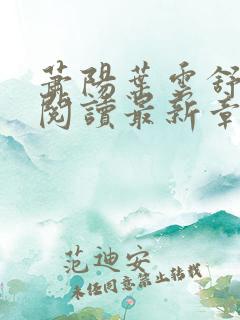 蕭陽葉雲舒
閱讀最新章
范迪安
未经同意禁止转载